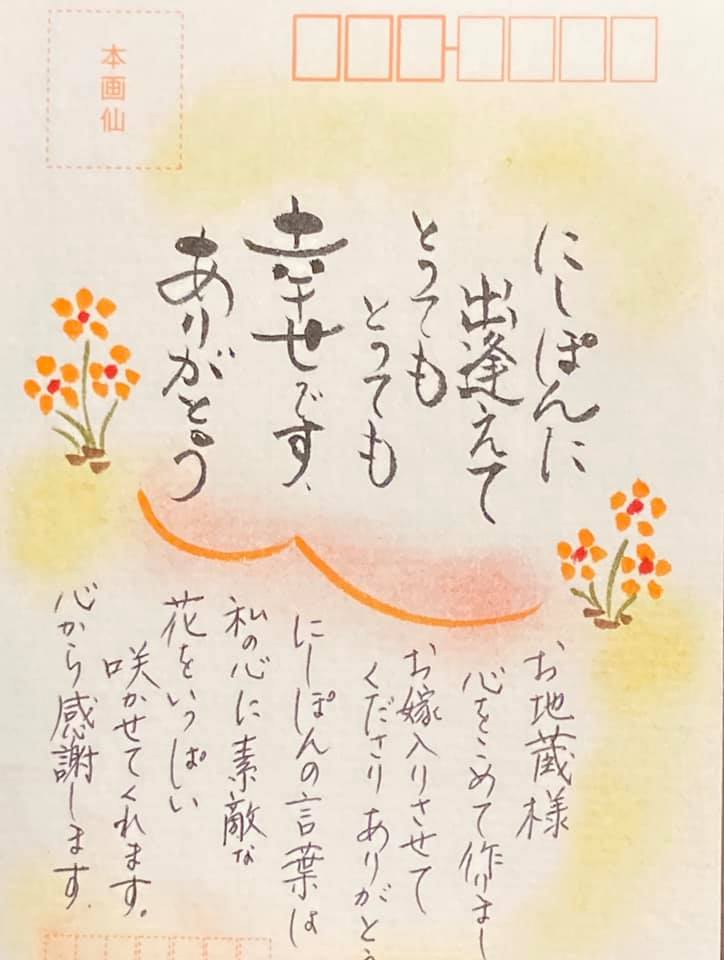 本画仙
にしぽんに
出逢えて
とっても
とっても
幸せです、
ありがとう
お地蔵様
心をこめて作りまし
お嫁入りさせて
くださりありがとう
にしぽんの言葉は
私の心に素敵な
花をいっぱい
咲かせてくれます。
心から感謝します。